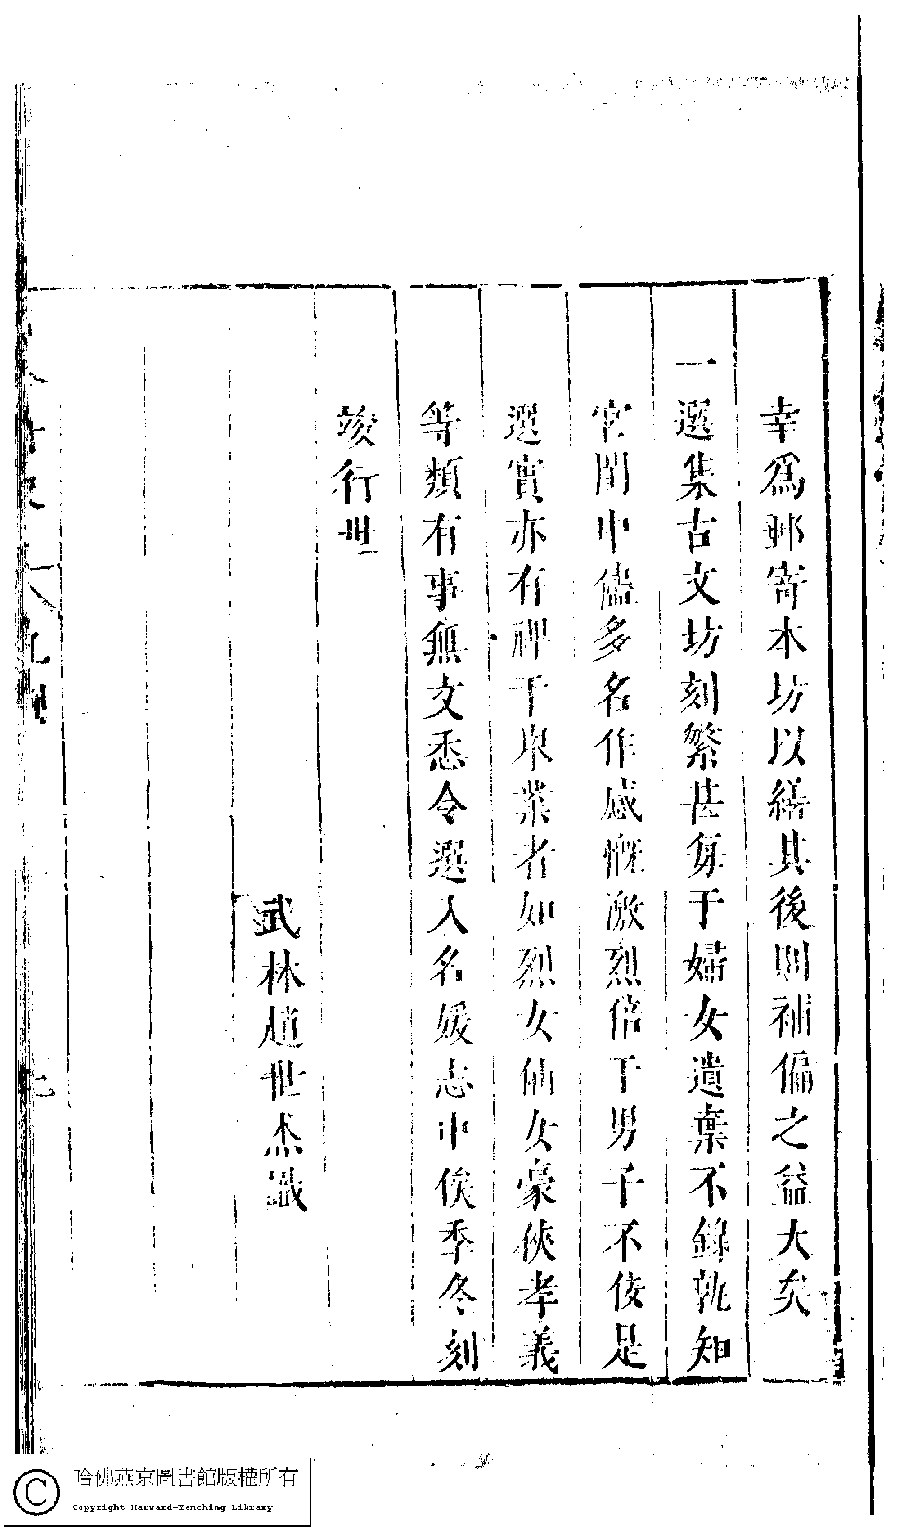 幸爲郵寄本坊以繕其後則補偏之益大矣
一選集古文坊刻繁甚每于婦女遺棄不錄孰知
宮閨中儘多名作感慨激烈倍于男子不佞是
選實亦有裨于舉業者如烈女仙女豪俠孝義
等類有事無文悉令選入名媛志中俟季冬刻
竣行世
武林趙世杰識
凡例
哈佛燕京圖書館版權所有
Copyright Harvard-Yenching Library